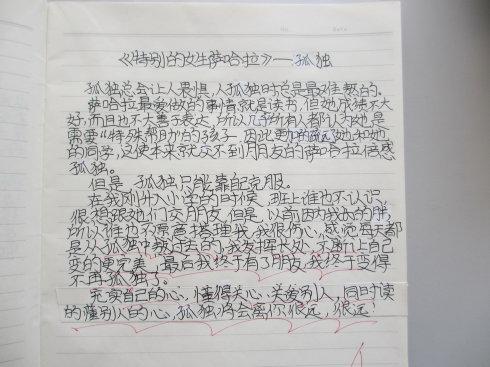 《特别的女生萨哈拉》——孤独
孤独总会让人畏惧,人孤独时总是最难熬的。
萨哈拉最爱做的事情就是读书,但她成绩不大
好,而且也不大善于表达,所以几乎所有人都认为她是
需要“特殊帮助”的孩子,因此更加疏远她和她
的同学,这使本来就交不到朋友的萨哈拉倍感
孤独。
但是,孤独只能靠自己克服。
在我刚升入小学的时候,班上谁也不认识,
很想跟她们交朋友,但是,以前因为我的胖,
所以谁也不愿意搭理我,我很伤心,感觉每天都
是从孤独中熬过去的,我发挥长处,不断让自己
变的更完美,最后我终于有了朋友,我终于变得
不再孤独了。
充实自己的心,懂得关心、关爱别人,同时读
的懂别人的心,孤独将会离你很远,很远!